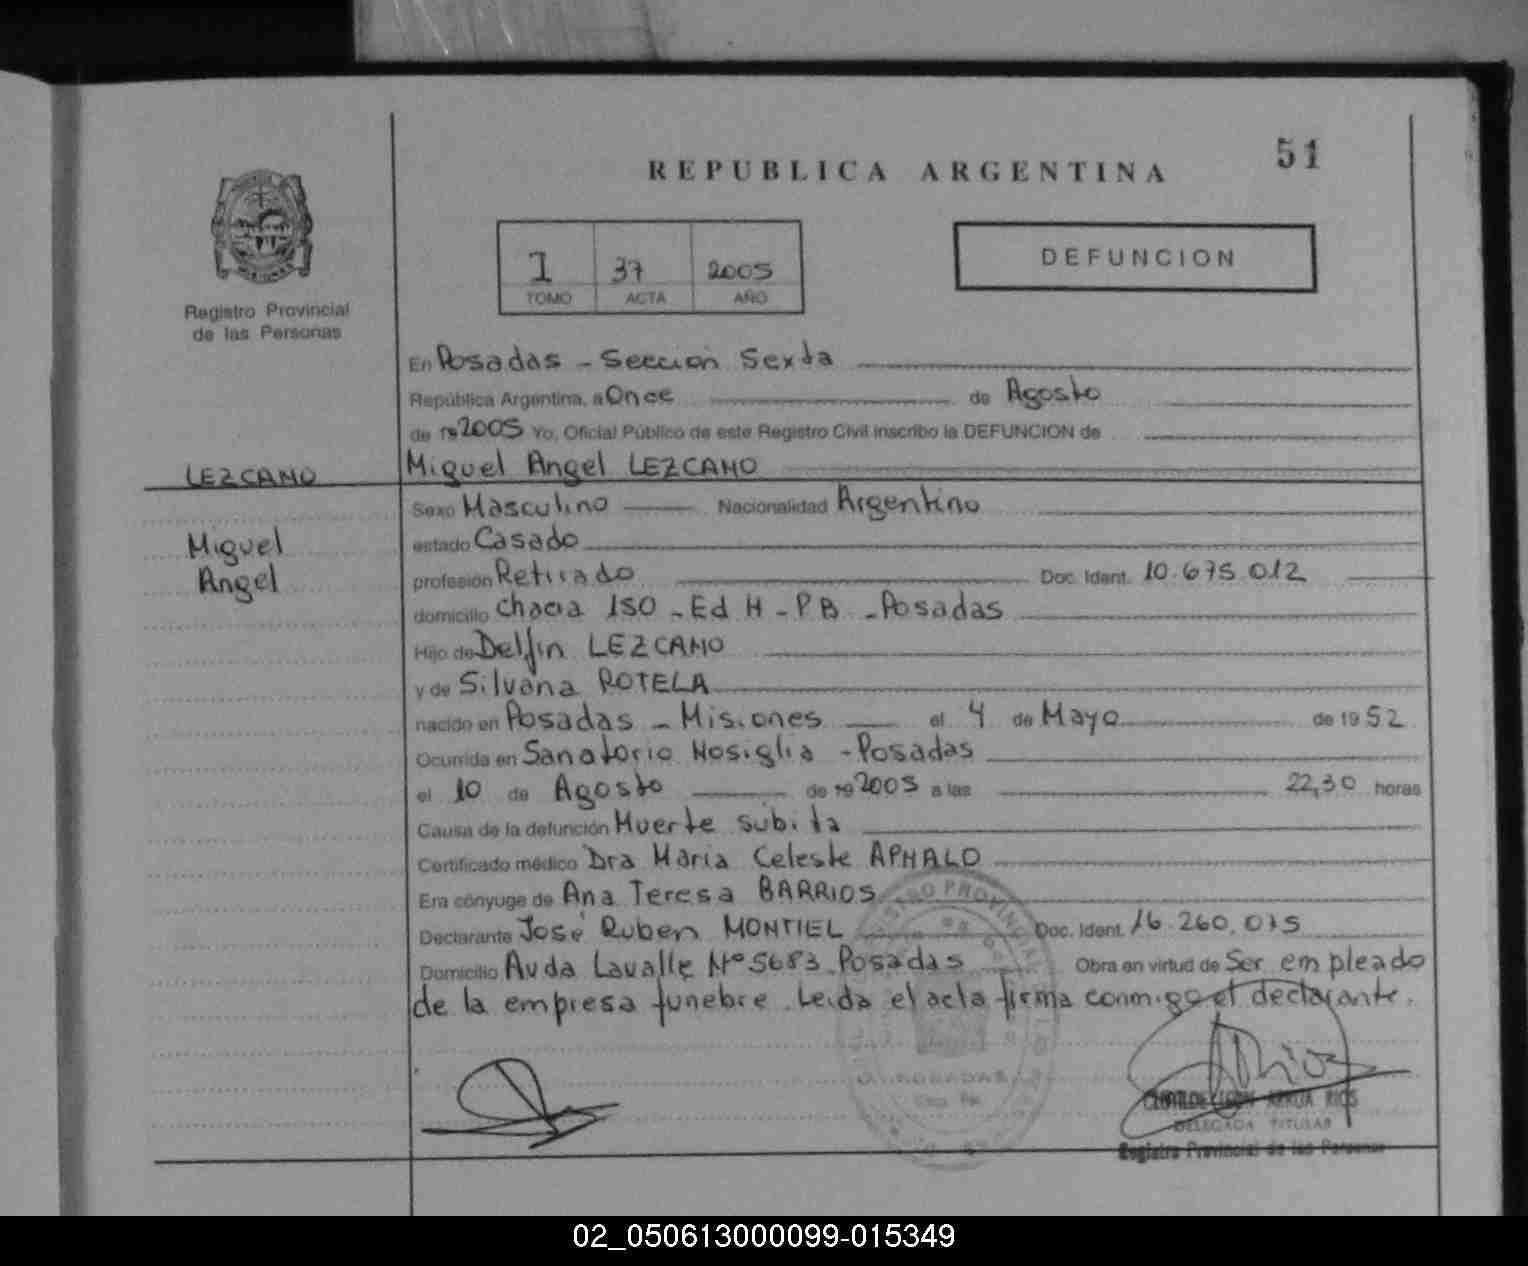 51
REPUBLICA ARGENTINA
1 37 2005
TOMO ACTA AÑO
DEFUNCION
Registro Provincial
de las Personas
En Posadas - Sección Sexta
República Argentina, a Once de Agosto
de 19 2005 Yo, Oficial Público de este Registro Civil inscribo la DEFUNCION de
LEZCANO
Miguel Angel LEZCANO
Miguel
Angel
Sexo Masculino Nacionalidad Argentino
estado Casado
profesión Retirado Doc. Ident. 10.675.012
domicilio Chacra 150 - Ed H - PB - Posadas
Hijo de Delfin LEZCANO
y de Silvana ROTELA
nacido en Posadas - Misiones el 4 de Mayo de 19 52
Ocurrida en Sanatorio Nosiglia - Posadas
el 10 de Agosto de 19 2005 a las 22,30 horas
Causa de la defunción Muerte subita
Certificado médico Dra Maria Celeste APHALO
Era cónyuge de Ana Teresa BARRIOS
Declarante José Ruben MONTIEL Doc. Ident. 16.260.075
Domicilio Avda Lavalle Nº 5683 Posadas Obra en virtud de Ser empleado
de la empresa funebre. Leida el acta firma conmigo el declarante.
RIOS
DELEGADA TITULAR
Registro Provincial de las Personas
POSADAS
02_050613000099-015349